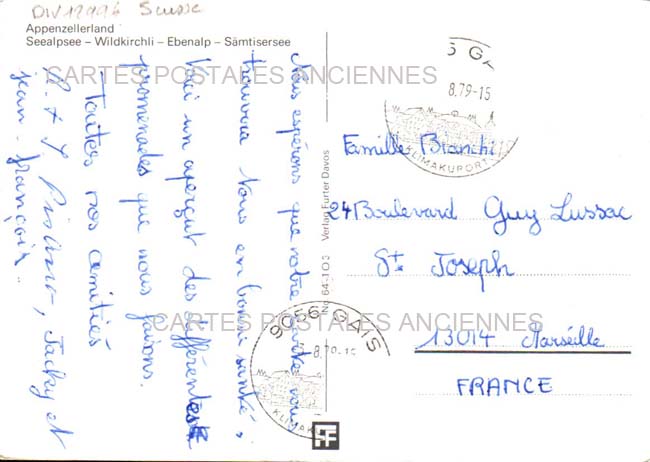 DIV12994 Suisse
Appenzellerland
Seealpsee – Wildkirchli – Ebenalp – Sämtisersee
CARTES POSTALES ANCIENNES
Nous espérons que notre carte vous
trouvera tous en bonne santé;
Voici un aperçut des différentes
promenades que nous faisons.
Toutes nos amitiés
Jacky et
jean-françois.
Verlag Furter Davos
8.79-15
KLIMAKURORT
Famille Bianchi
24 Boulevard Guy Lussac
Ste Joseph
13014 Marseille
FRANCE
CARTES POSTALES ANCIENNES
9056 GAIS